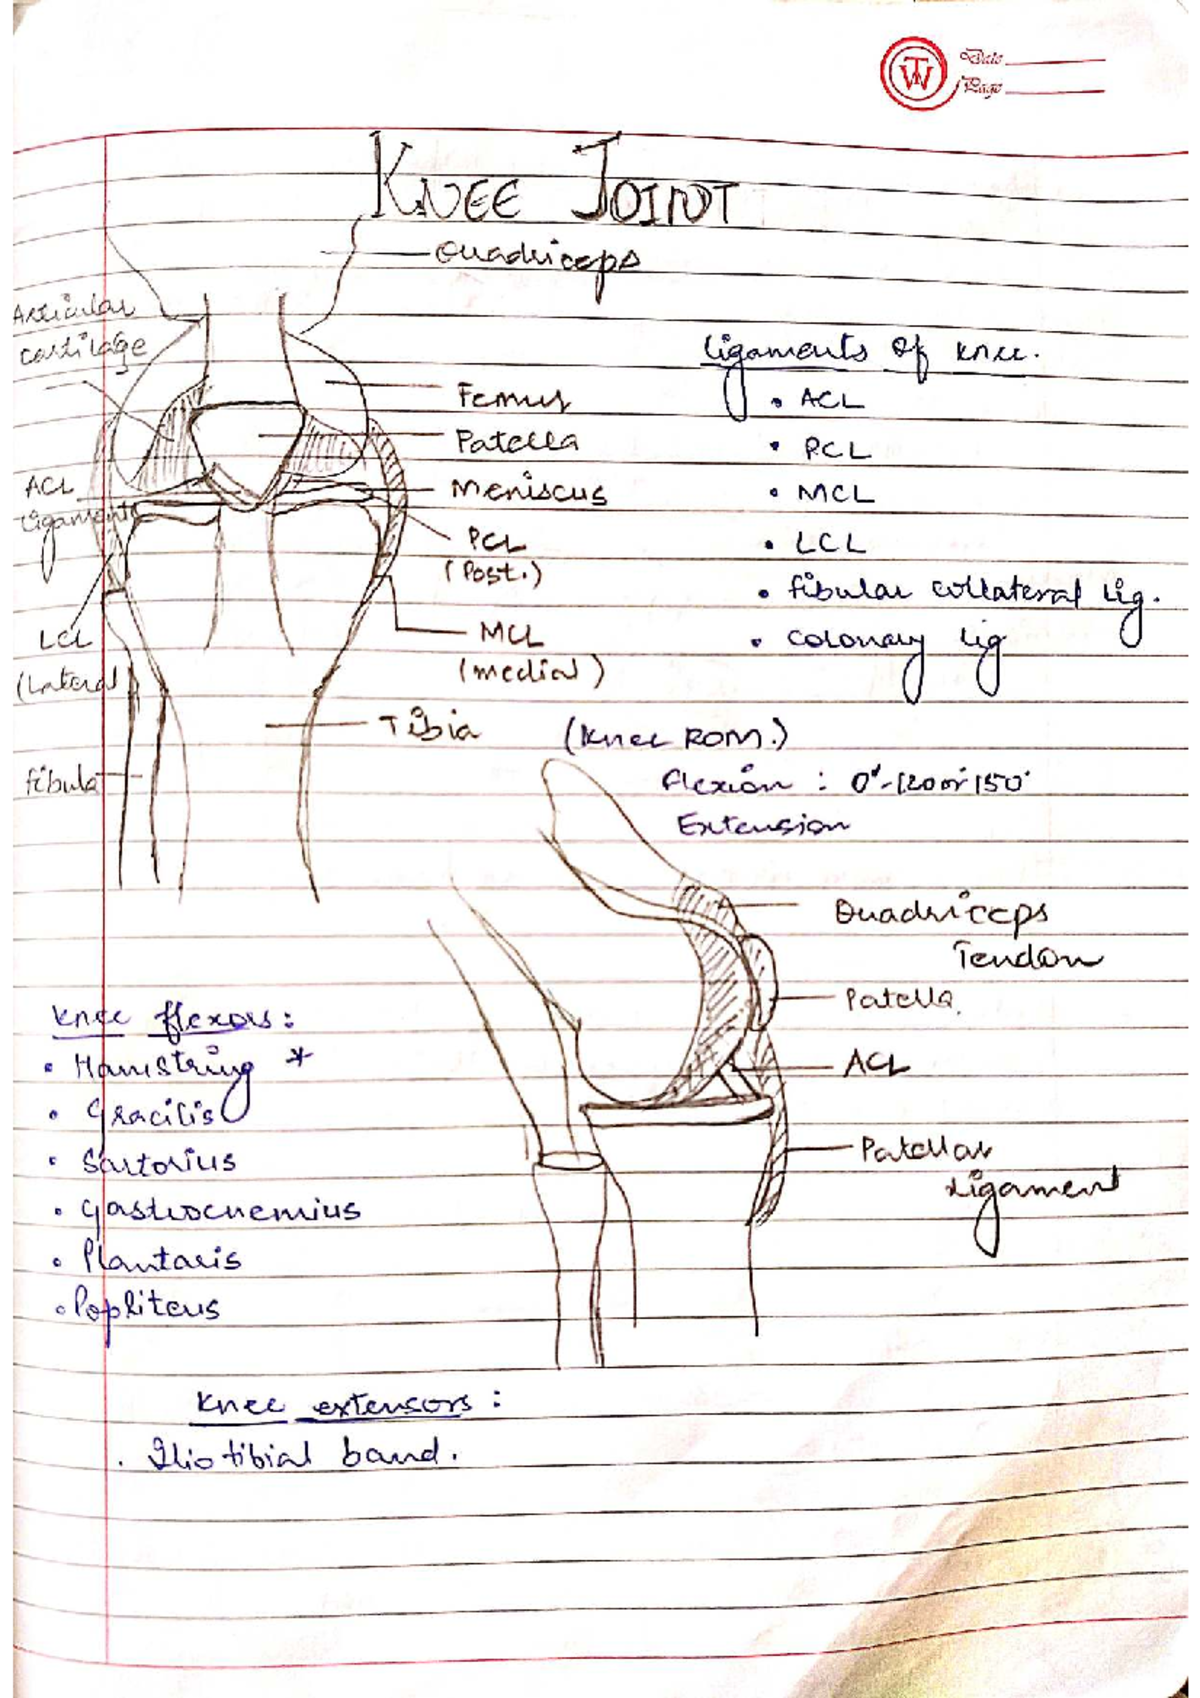 TW
Date
Page
KNEE JOINT
Quadriceps
Articular
cartilage
Ligaments of knee.
Femur
• ACL
Patella
• PCL
ACL
Ligament
Meniscus
• MCL
PCL
(Post.)
• LCL
• fibular collateral lig.
LCL
(Lateral)
MCL
(medial)
• Colonary lig
Tibia
(Knee ROM.)
fibula
flexion : 0°-120 or 150°
Extension
Quadriceps
Tendon
Patella.
Knee flexors:
• Hamstring *
ACL
• Gracilis
• Sartorius
Patellar
Ligament
• Gastrocnemius
• Plantaris
• Popliteus
Knee extensors:
. Iliotibial band.